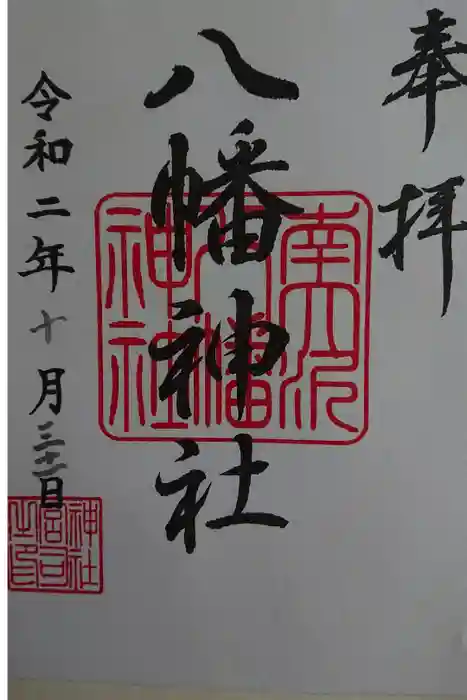 奉拝
八幡神社
令和二年十月三十一日
南大沢
八幡
神社
神社
宮司
之印